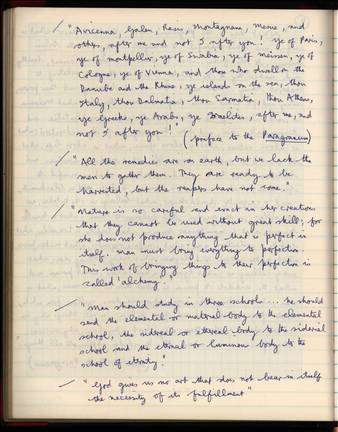 "Avicenna, Galen, Rasis, Montagnana, Mesue, and
others, after me and not I after you! Ye of Paris,
ye of Montpellier, ye of Swabia, ye of Meissen, ye of
Cologne, ye of Vienna, and thou who dwell on the
Danube and the Rhine, ye islands on the sea, thou
Italy, thou Dalmatia, thou Sarmatia, thou Athens,
ye Greeks, ye Arabs, ye Israelites, after me, and
not I after you!"
(preface to the Paragranum)
"All the remedies are on earth, but we lack the
men to gather them. They are ready to be
harvested, but the reapers have not come."
"Nature is so careful and exact in her creations
that they cannot be used without great skill; for
she does not produce anything that is perfect in
itself. Man must bring everything to perfection.
This work of bringing things to their perfection is
called 'alchemy'."
"Man should study in three schools ... he should
send the elemental or material body to the elemental
school, the sidereal or ethereal body to the sidereal
school and the eternal or luminous body to the
school of eternity."
"God gives us no art that does not bear in itself
the necessity of its fulfillment"